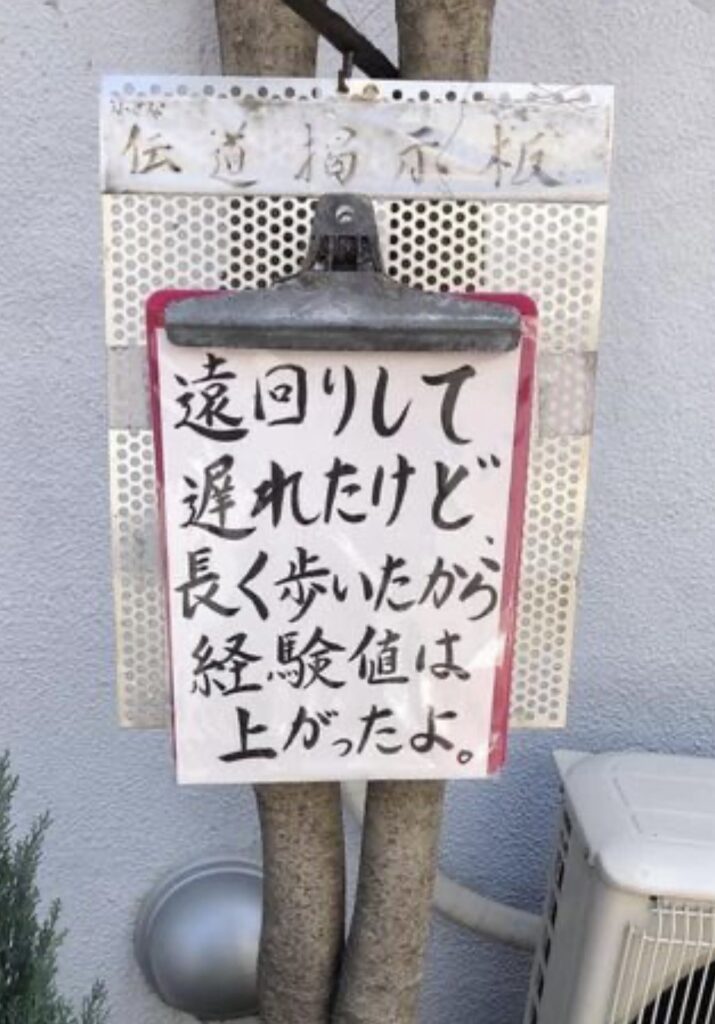 小さな
伝道掲示板
遠回りして
遅れたけど、
長く歩いたから
経験値は
上がったよ。